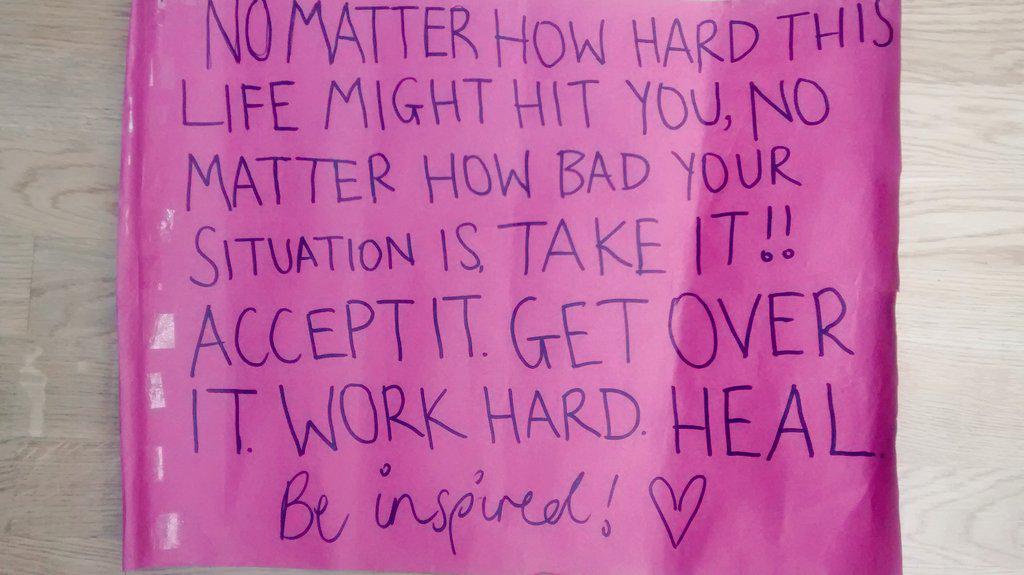 NO MATTER HOW HARD THIS
LIFE MIGHT HIT YOU, NO
MATTER HOW BAD YOUR
SITUATION IS, TAKE IT!!
ACCEPT IT. GET OVER
IT. WORK HARD. HEAL.
Be inspired! ♡